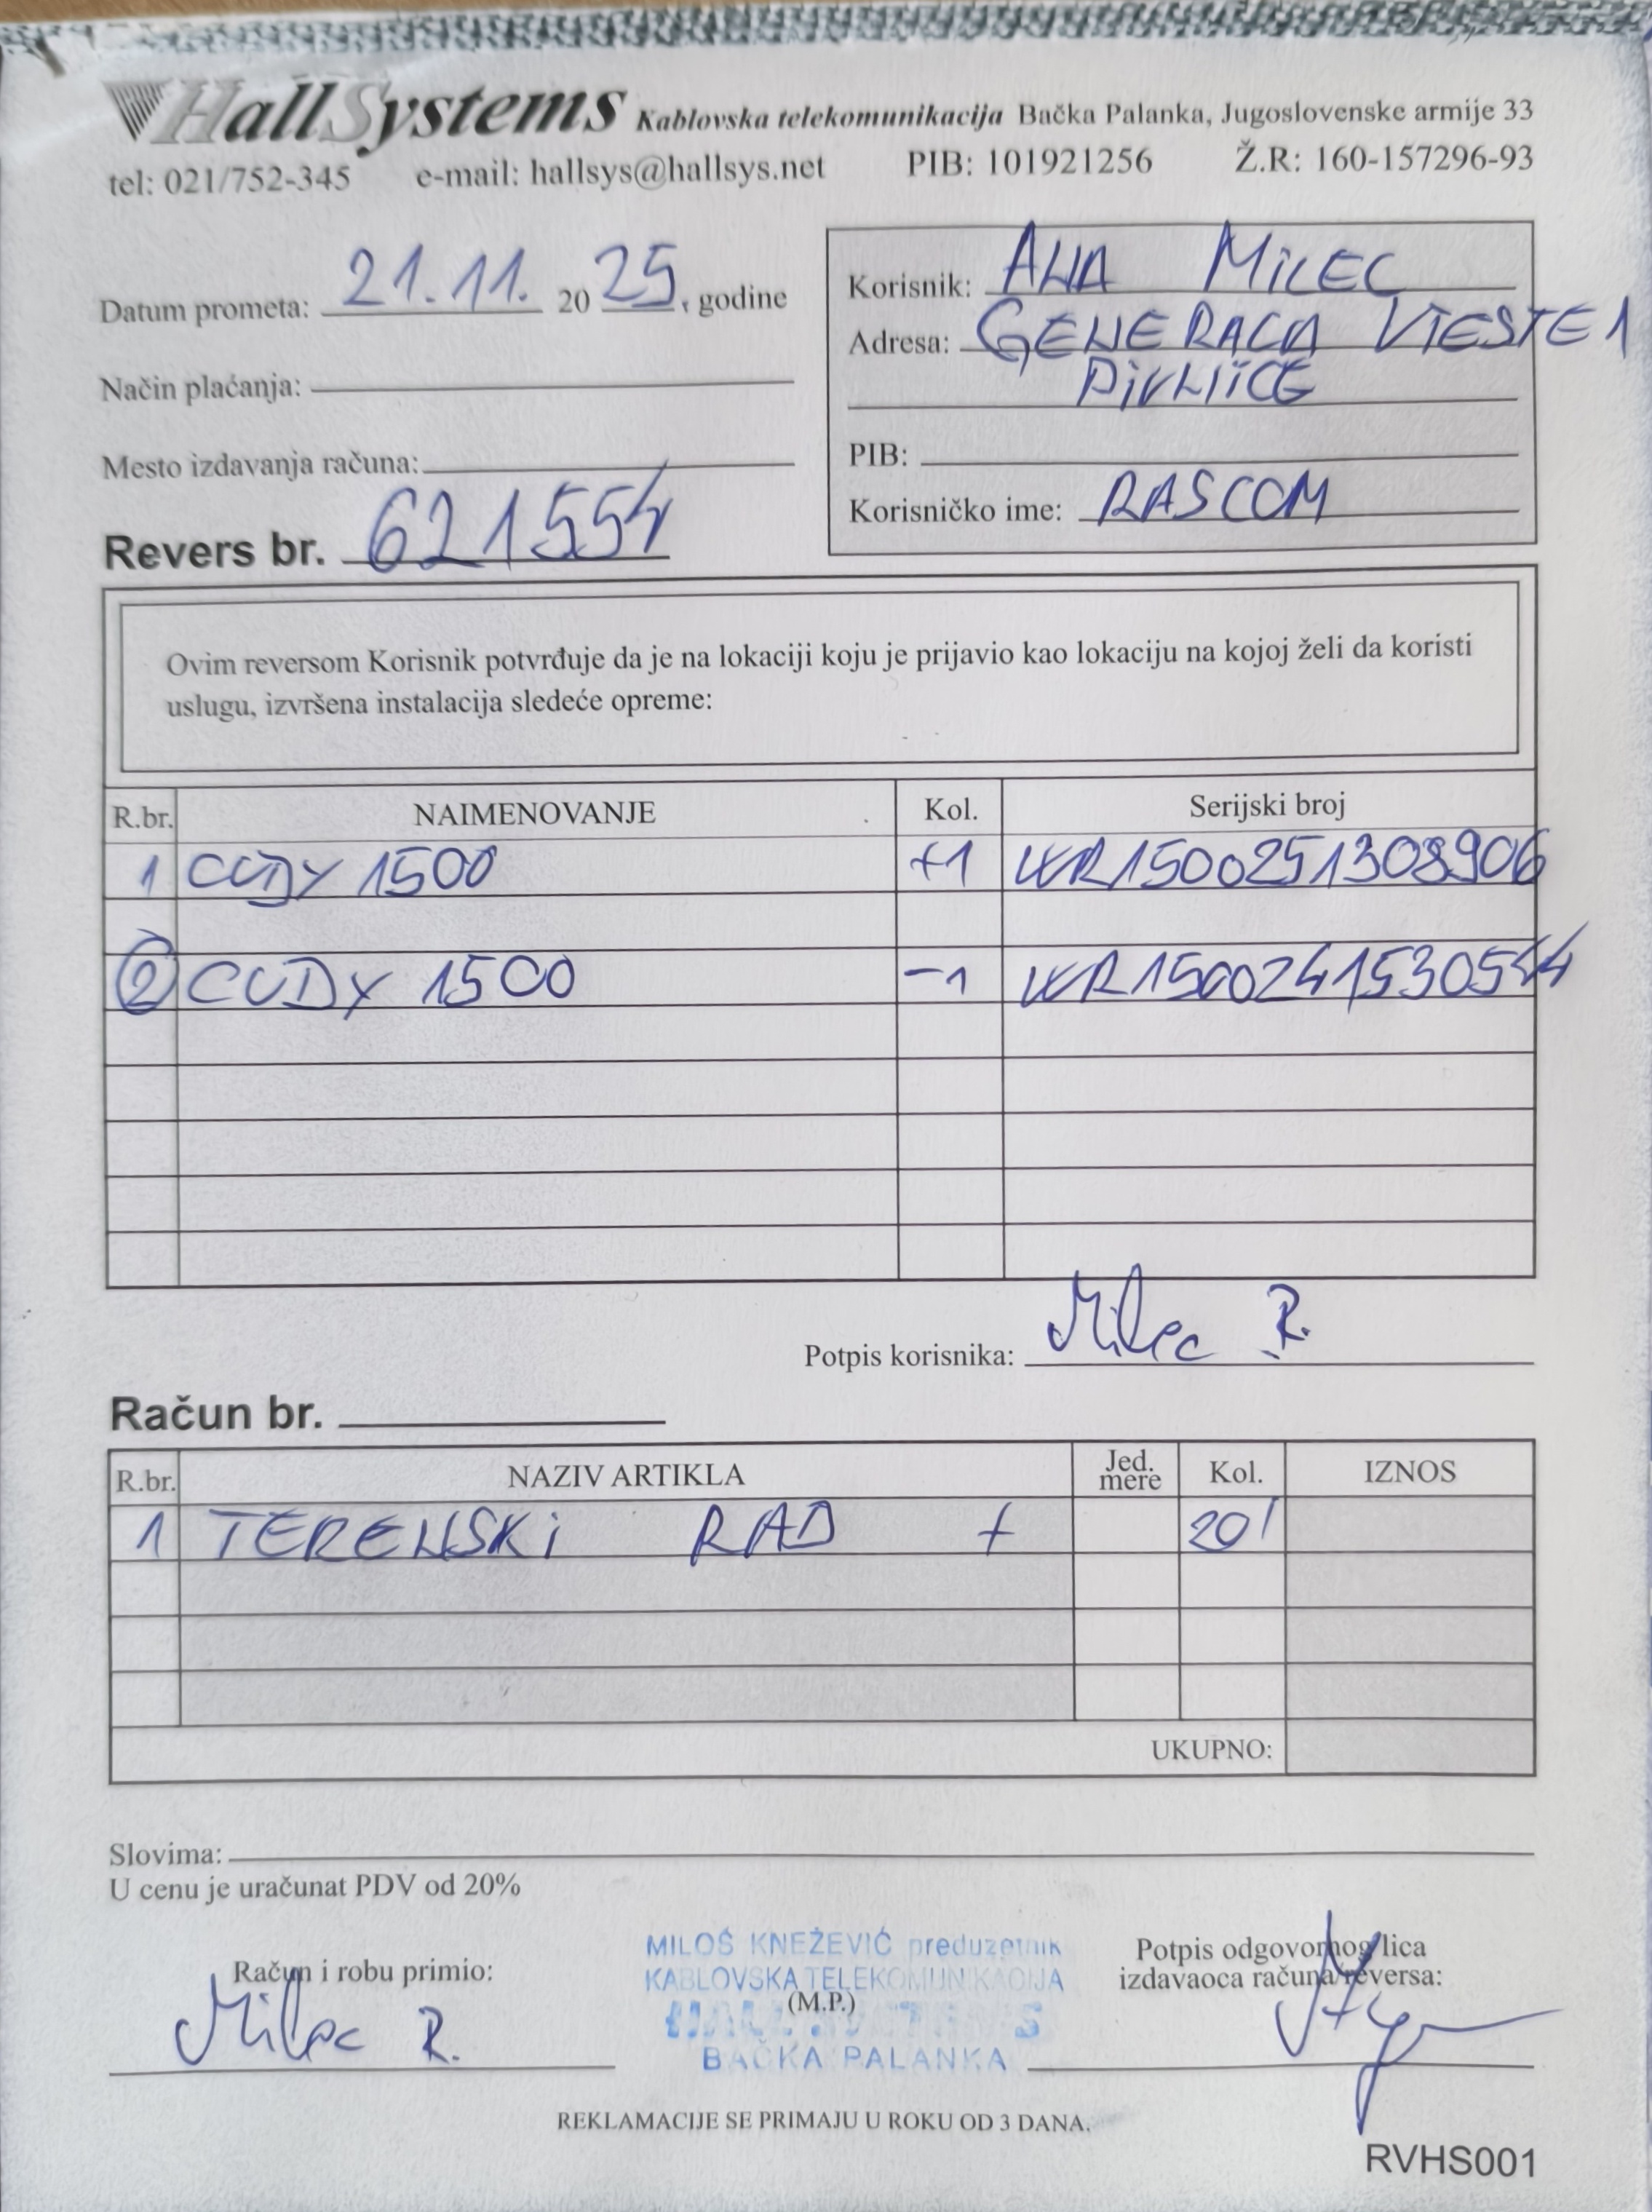 HallSystems Kablovska telekomunikacija Bačka Palanka, Jugoslovenske armije 33
tel: 021/752-345 e-mail: hallsys@hallsys.net PIB: 101921256 Ž.R: 160-157296-93
Datum prometa: 21.11. 2025, godine
Način plaćanja:
Mesto izdavanja računa:
Revers br. 621554
Korisnik: ANA MILEC
Adresa: GENERALA VIESTE 1
PIVNICE
PIB:
Korisničko ime: RASCOM
Ovim reversom Korisnik potvrđuje da je na lokaciji koju je prijavio kao lokaciju na kojoj želi da koristi
uslugu, izvršena instalacija sledeće opreme:
R.br. NAIMENOVANJE Kol. Serijski broj
1 CUDY 1500 +1 WR1500251308906
2 CUDY 1500 -1 WR1500241530544
Potpis korisnika: Milec R.
Račun br.
R.br. NAZIV ARTIKLA Jed. mere Kol. IZNOS
1 TERENSKI RAD + 20'
UKUPNO:
Slovima:
U cenu je uračunat PDV od 20%
Račun i robu primio:
Milec R.
MILOŠ KNEŽEVIĆ preduzetnik
KABLOVSKA TELEKOMUNIKACIJA
(M.P.)
HALL SYSTEMS
BAČKA PALANKA
Potpis odgovornog lica
izdavaoca računa/reversa:
REKLAMACIJE SE PRIMAJU U ROKU OD 3 DANA.
RVHS001